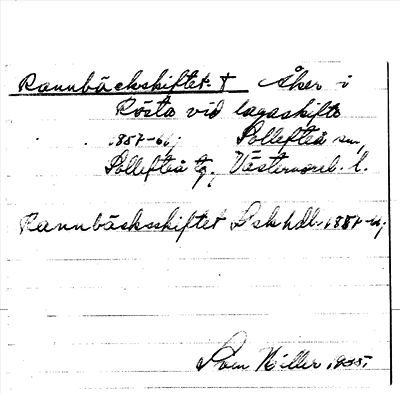 Rannbäckskiftet. † Åker i
Rösta vid lagaskifte
1857-61, Sollefteå sn,
Sollefteå tg, Västernorrl. l.
Rannbäcksskiftet Lskhdl. 1857-61,
1955.